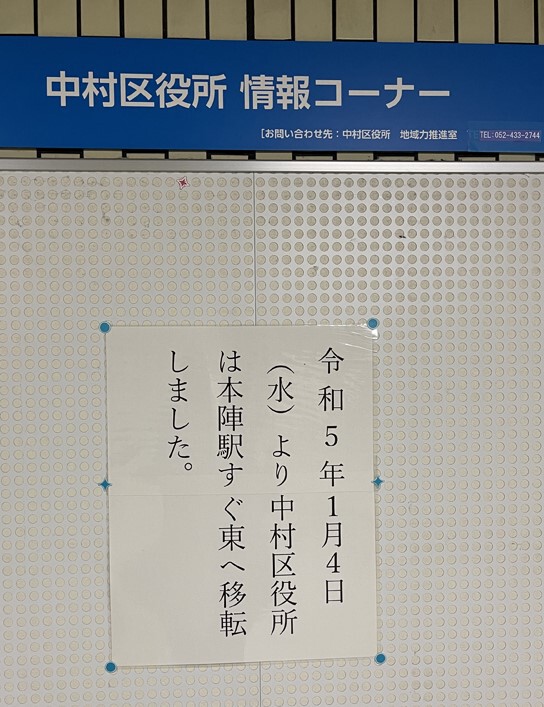 中村区役所 情報コーナー
[お問い合わせ先：中村区役所 地域力推進室 TEL:052-433-2744
令和5年1月4日
（水）より中村区役所
は本陣駅すぐ東へ移転
しました。